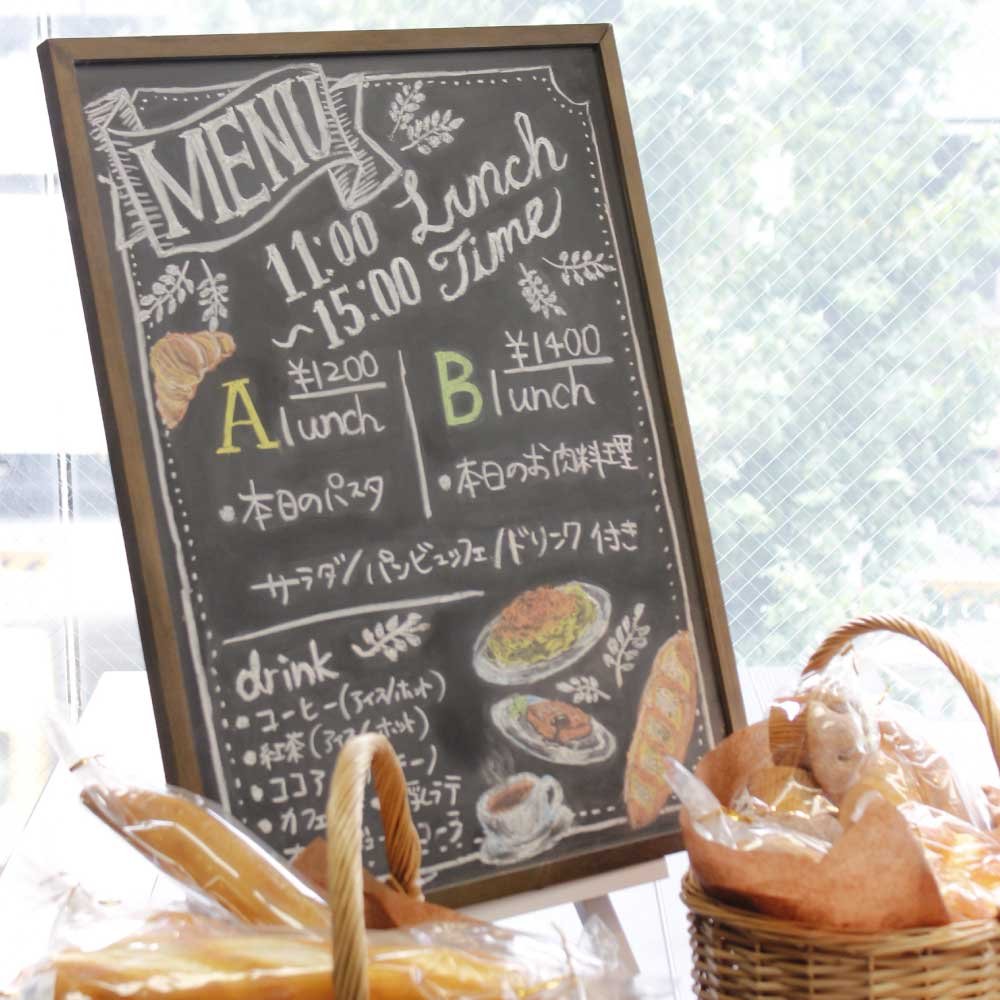 MENU
Lunch Time
11:00
~15:00
¥1200
A lunch
・本日のパスタ
¥1400
B lunch
・本日のお肉料理
サラダ/パンビュッフェ/ドリンク付き
drink
・コーヒー(アイス/ホット)
・紅茶(アイス/ホット)
・ココア
・カフェ
ラテ
コーラ